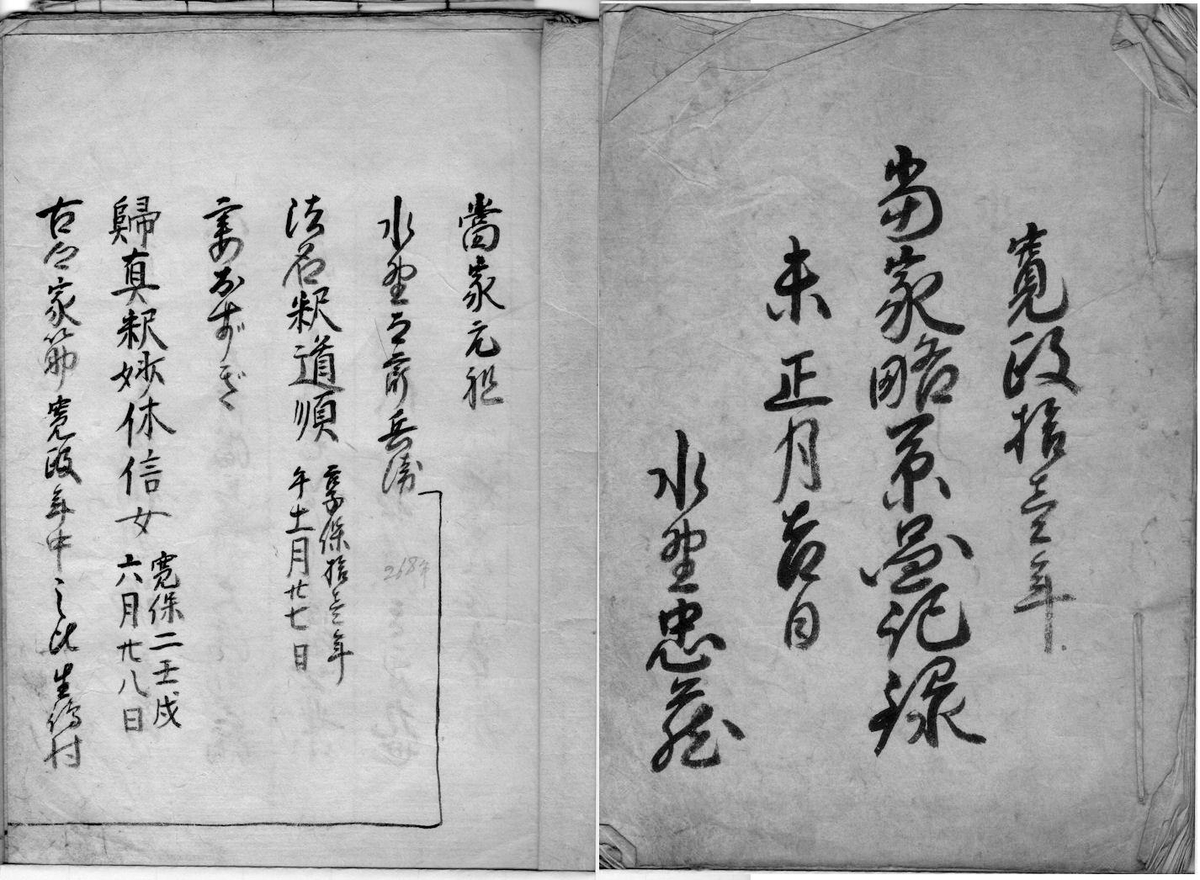 寛政拾壱年
当家略系図記録
未正月吉日
水野忠蔵
當家元祖
水野 兵衛
法名釈道順
享保拾壱年
午十一月廿七日
妻お
歸真釈妙休信女
寛保二壬戌
六月廿八日
家筋寛政年中之比生 村
268年